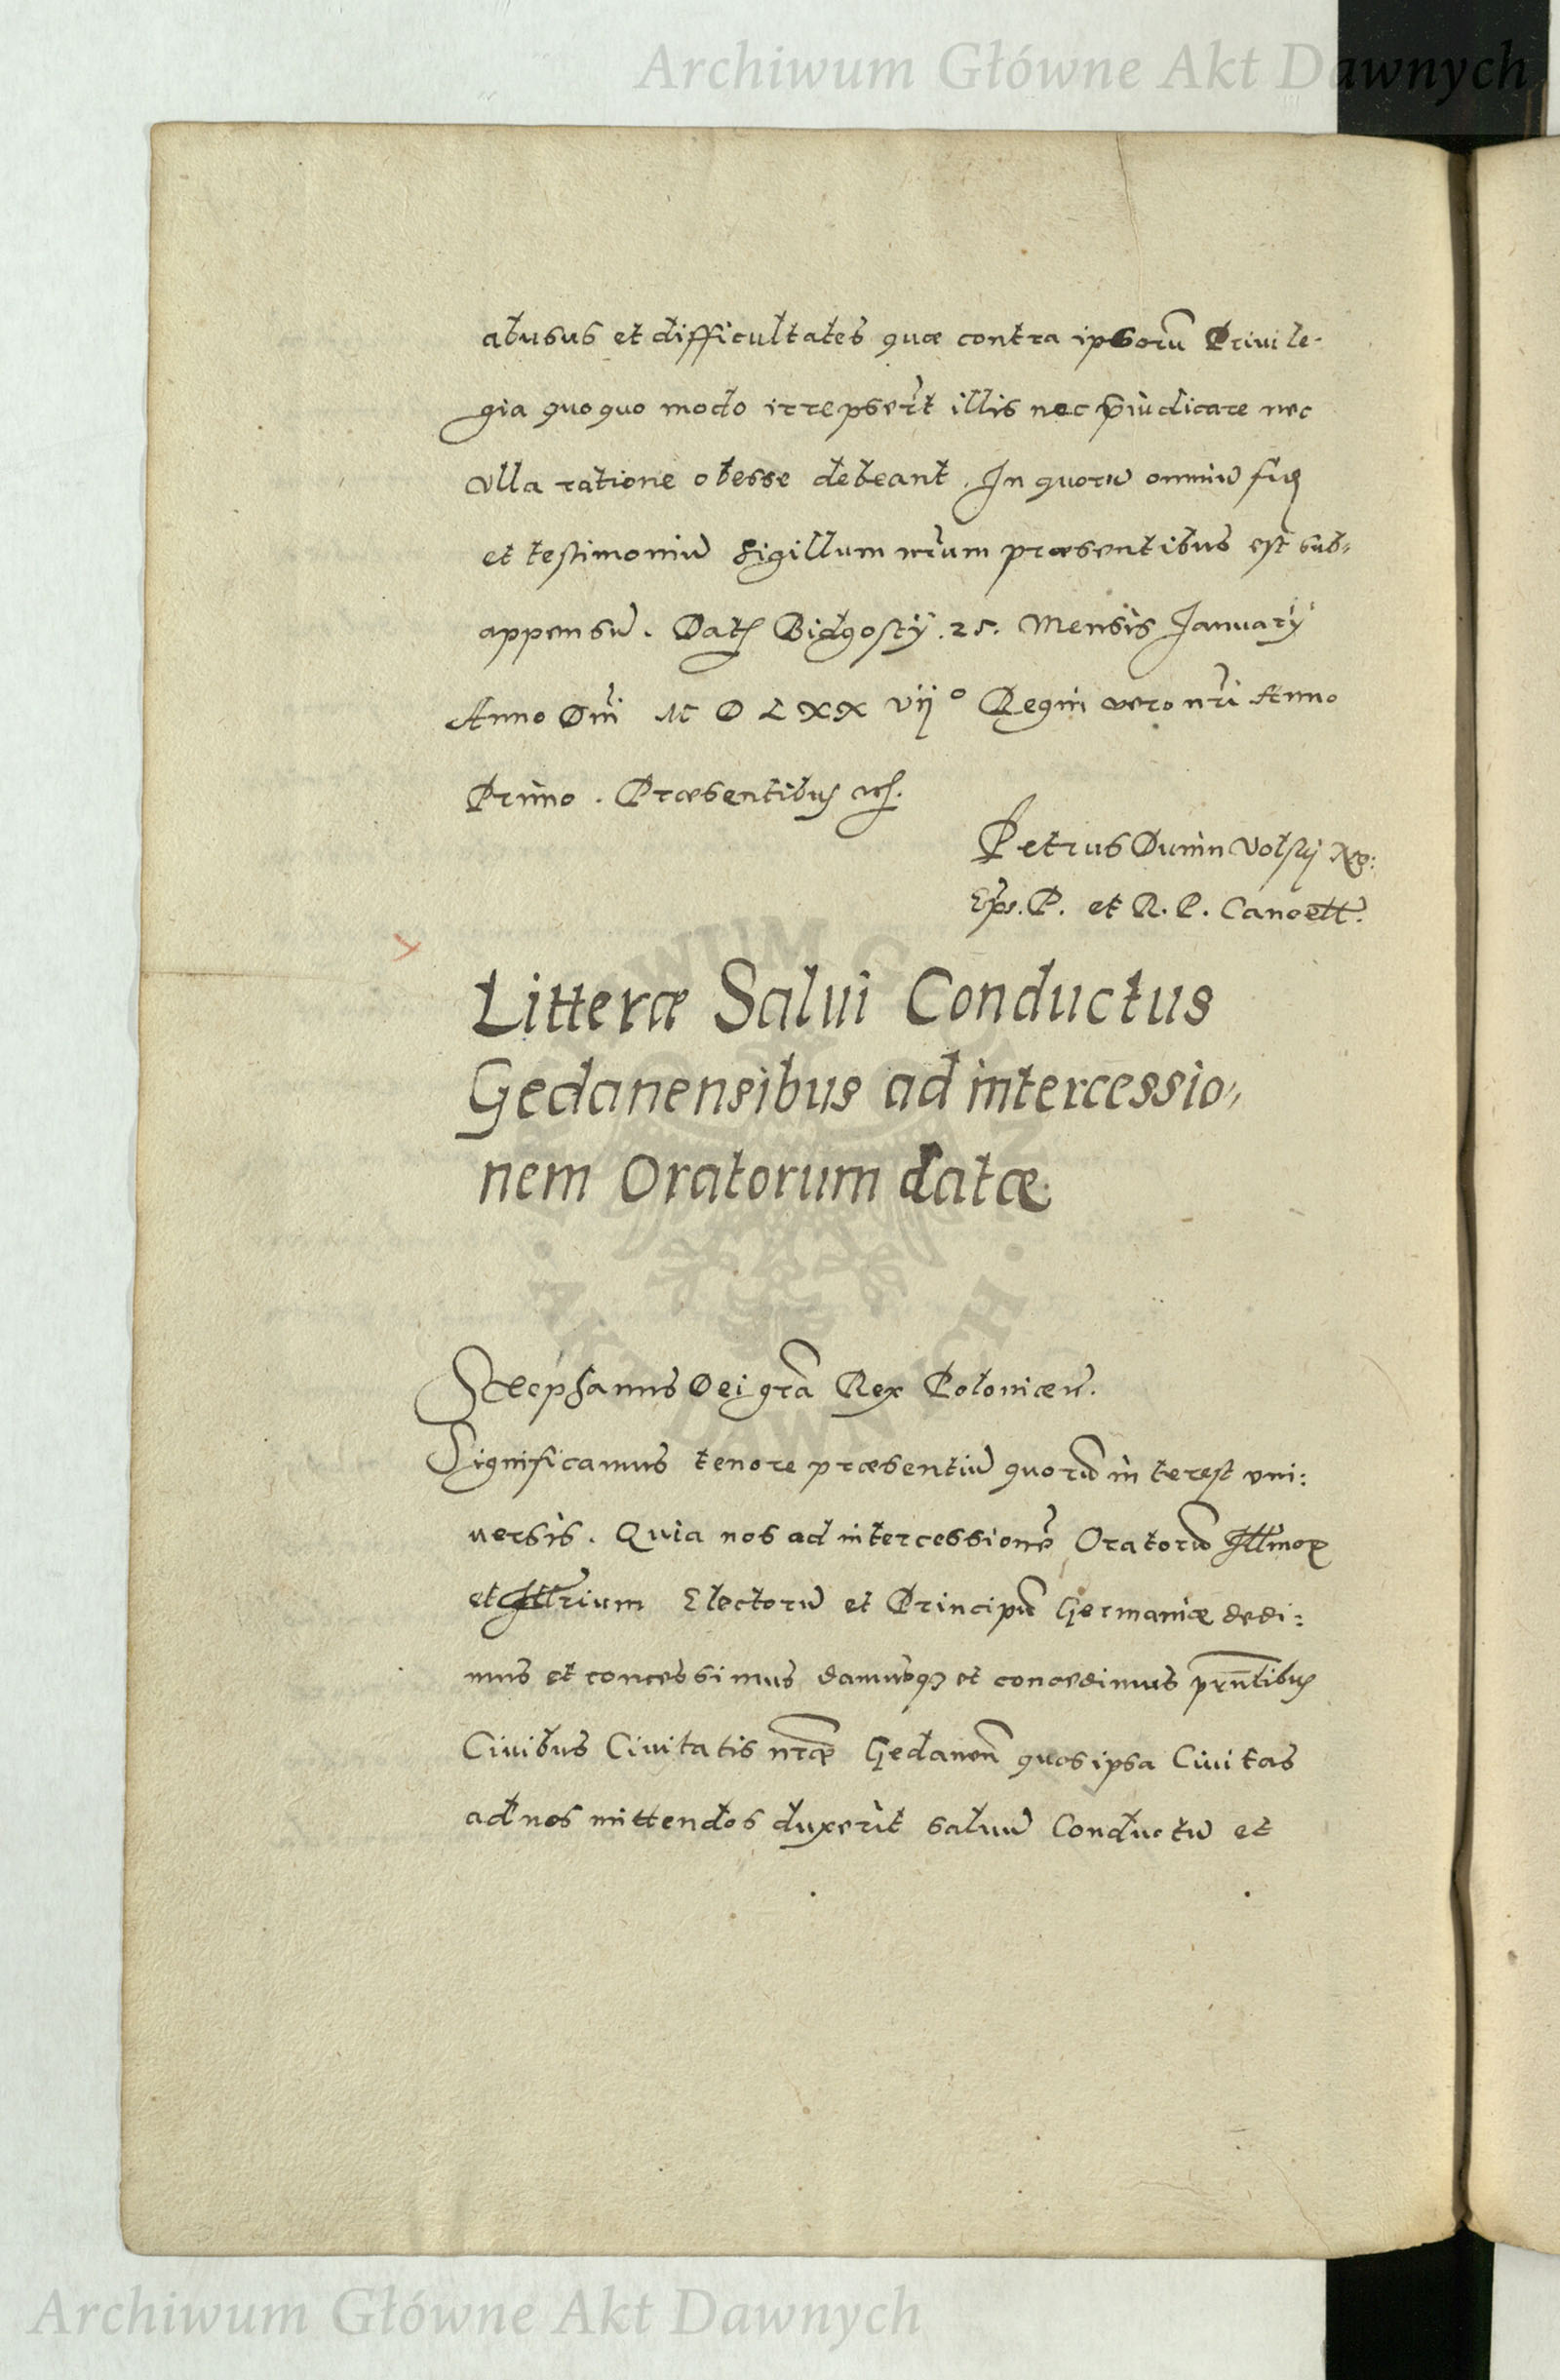 Archiwum Główne Akt Dawnych
abusus et difficultates quæ contra ipsorũ Privile-
gia quoquo modo irrepserĩt illis nec p̃iudicare nec
ulla ratione obesse debeant. In quorũ omniũ fidẽ
et testimoniũ Sigillum nr̃um præsentibus est sub-
appensũ. Datɟ Bidgostÿ. 25. Mensis Januarÿ
Anno Dñi M D L X X Vij° Regni vero nr̃i Anno
Primo. Præsentibus etc.
Petrus Dunin Volsky
Eps̃. P. et R. P. Cancell̃.
Litteræ Salvi Conductus
Gedanensibus ad intercessio-
nem Oratorum datæ.
Stephanus Dei grã Rex Poloniæ
Significamus tenore præsentiũ quorũ interest uni:
versis. Quia nos ad intercessionẽ Oratorũ Illm̃oꝝ
et Illr̃ium Electorũ et Principũ Germaniæ dedi:
mus et concessimus damusqꝫ et concedimus prñtibus
Civibus Civitatis nr̃æ Gedaneñ quos ipsa Civitas
ad nos mittendos duxerit salvũ Conductũ et
ARCHIWUM GŁÓWNE · AKT DAWNYCH ·
Archiwum Główne Akt Dawnych